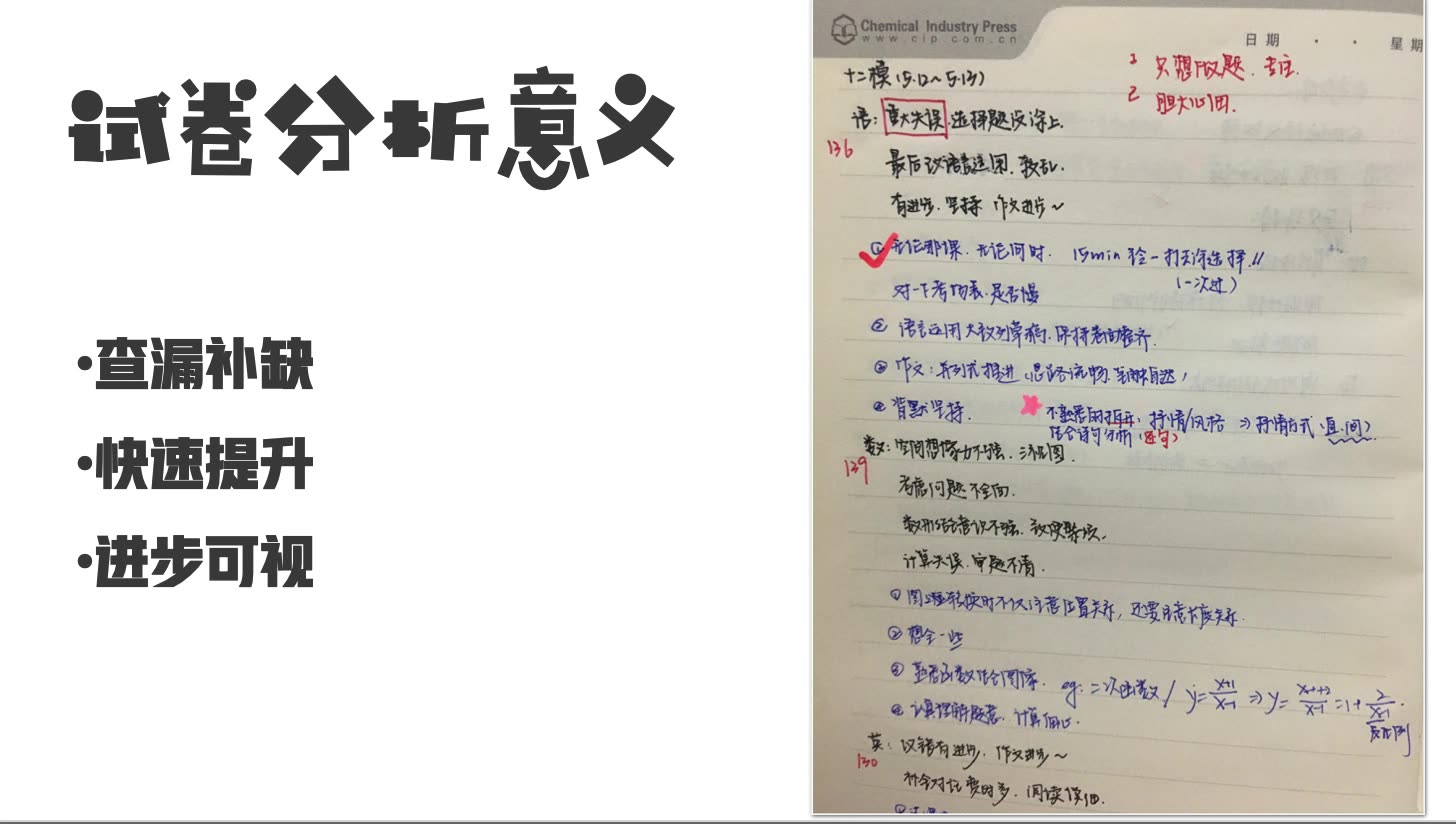 试卷分析意义
•查漏补缺
•快速提升
•进步可视
Chemical Industry Press
www.cip.com.cn
日期 · · 星期
1 只想做题、专注.
2 胆大心细.
十二模(5.12~5.13)
语: 重大失误. 选择题没涂上.
136
最后改语言运用. 较乱.
有进步. 坚持 作文进步~
① 无论那课. 无论何时. 15min 铃一打 涂选择!!
(一次过)
对一下考场表. 是否慢
② 语言运用 大致列草稿. 保持卷面整齐.
③ 作文: 并列式推进 思路流畅. 自然
④ 背默坚持.
不熟悉的 抒情/风格 => 抒情方式(直.间)
结合诗句分析(逐句)
数: 空间想像力不强. 三视图.
139
考虑问题不全面.
数形结合意识不强.
计算失误. 审题不清.
① 图 转换时不仅注意位置关系, 还要注意长度关系.
② 想全一些
③ 熟悉函数结合图像. eg: 二次函数 / y=
④ 认真理解题意. 计算细心.
反比例
英: 改错有进步. 作文进步~
130
补全对话费时多. 阅读